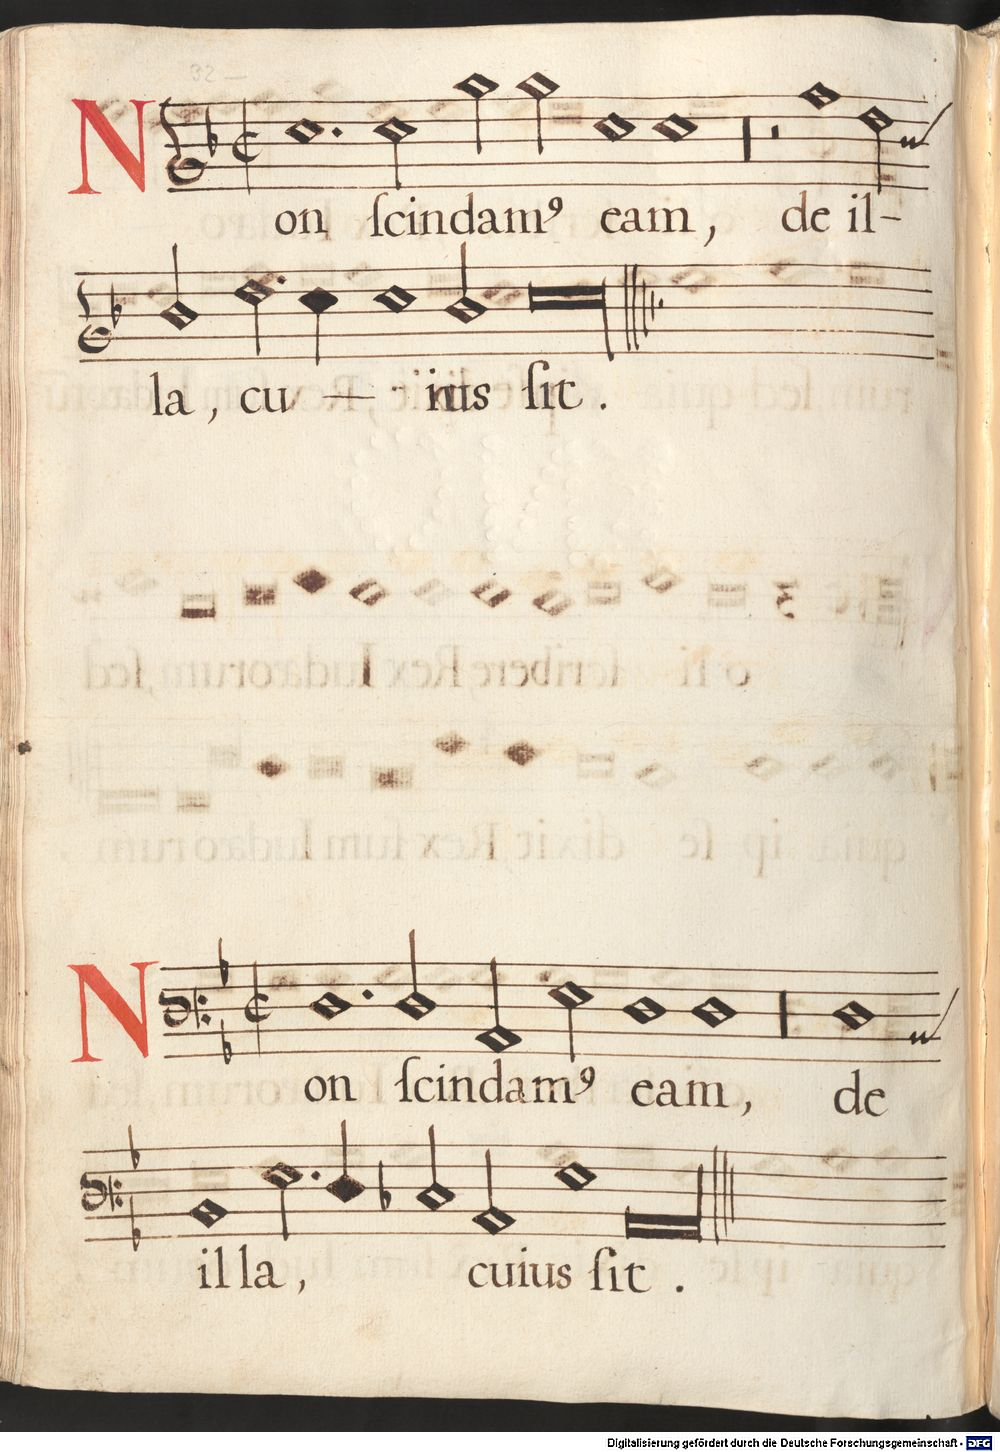 32
Non ſcindamꝰ eam, de il-
la, cu — ius ſit.
Non ſcindamꝰ eam, de
illa, cuius ſit.
Digitalisierung gefördert durch die Deutsche Forschungsgemeinschaft - DFG